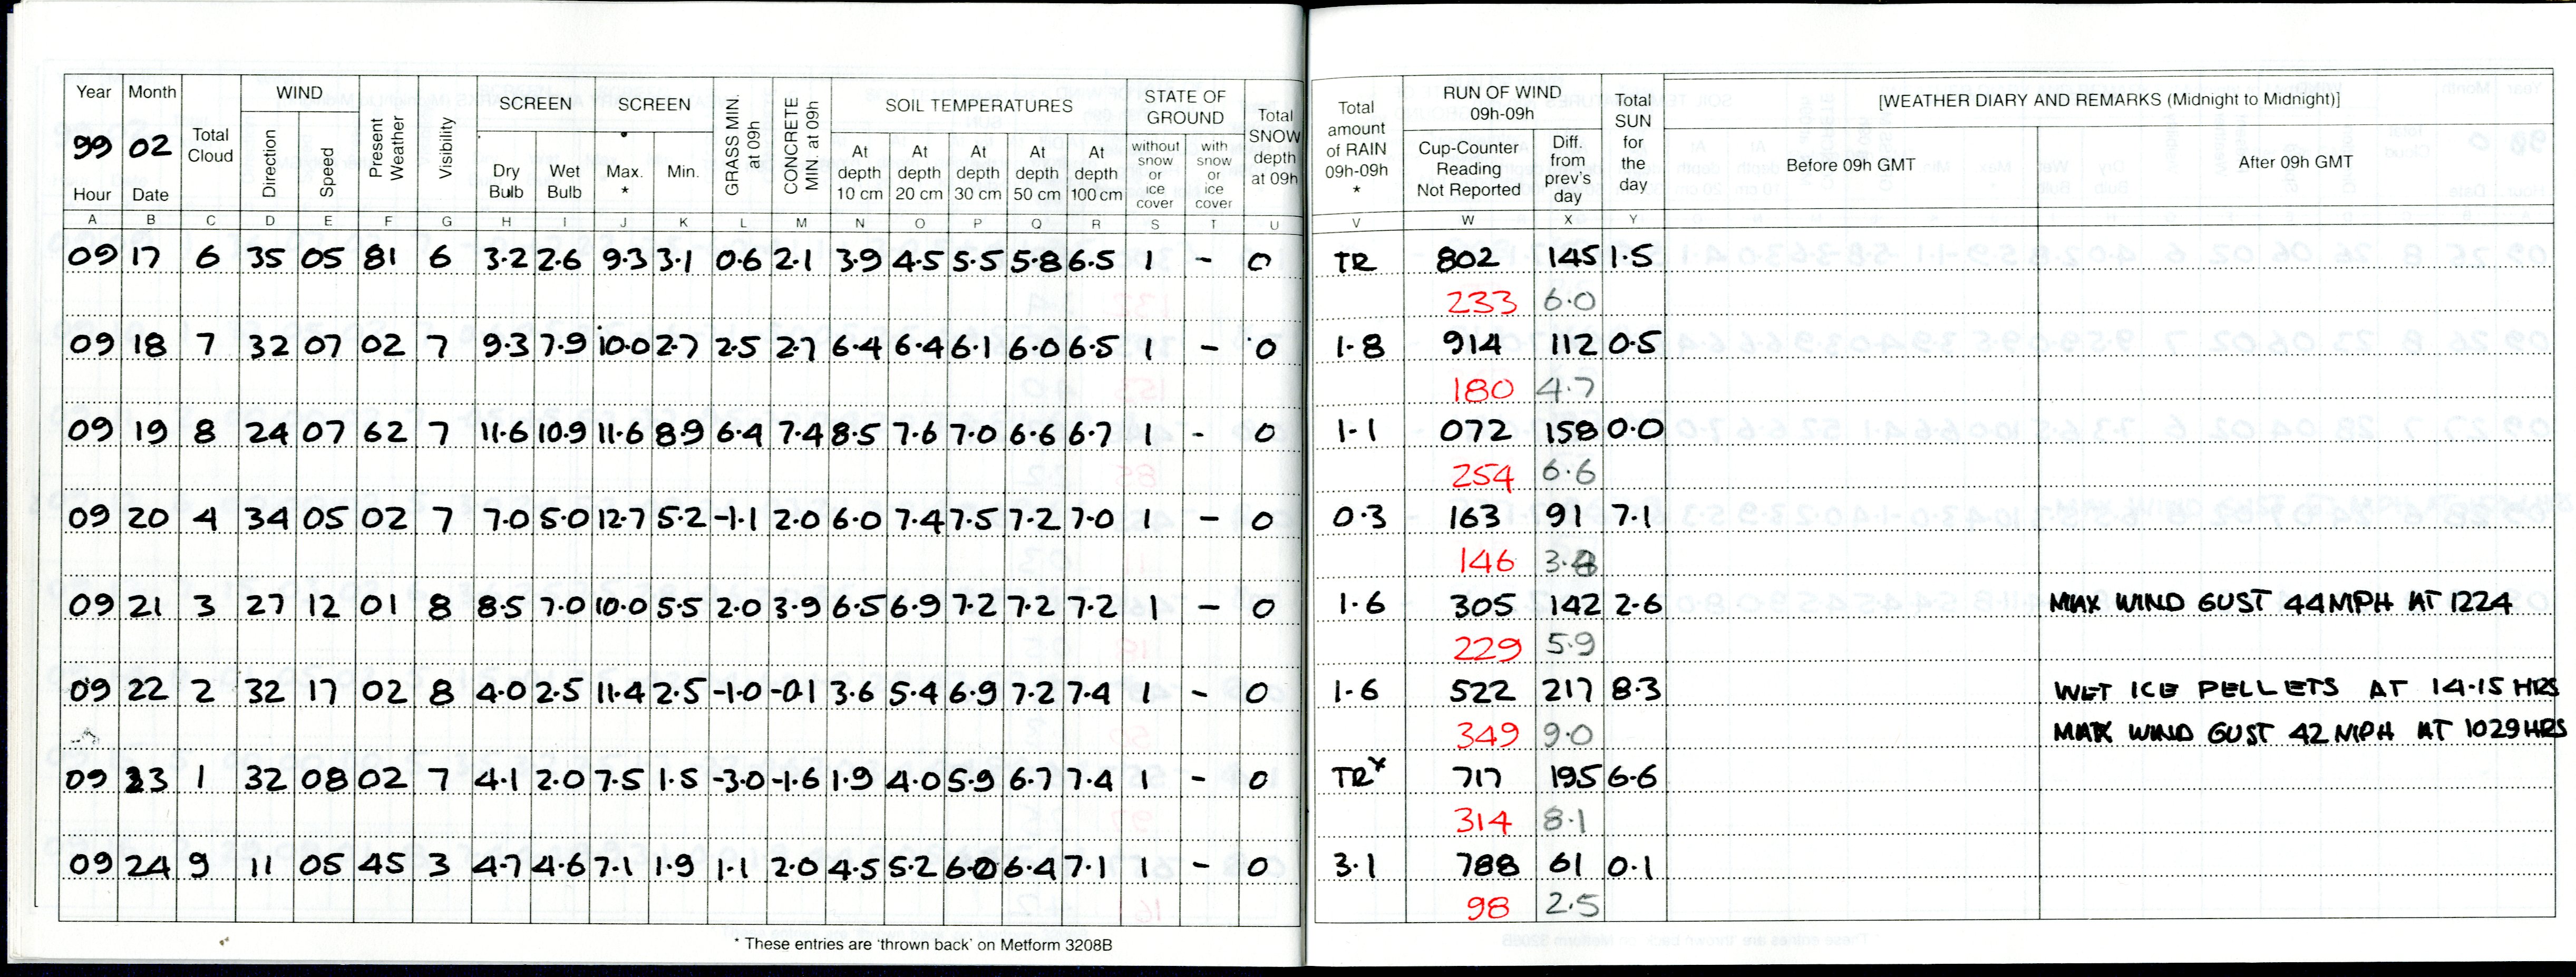 Year Month WIND SCREEN SCREEN SOIL TEMPERATURES STATE OF GROUND RUN OF WIND 09h-09h [WEATHER DIARY AND REMARKS (Midnight to Midnight)]
99 02 Total Cloud Direction Speed Present Weather Visibility Dry Bulb Wet Bulb Max. * Min. GRASS MIN. at 09h CONCRETE MIN. at 09h At depth 10 cm At depth 20 cm At depth 30 cm At depth 50 cm At depth 100 cm without snow or ice cover with snow or ice cover Total SNOW depth at 09h Total amount of RAIN 09h-09h * Cup-Counter Reading Not Reported Diff. from prev's day Total SUN for the day Before 09h GMT After 09h GMT
Hour Date
A B C D E F G H I J K L M N O P Q R S T U V W X Y
09 17 6 35 05 81 6 3.2 2.6 9.3 3.1 0.6 2.1 3.9 4.5 5.5 5.8 6.5 1 - 0 TR 802 145 1.5
233 6.0
09 18 7 32 07 02 7 9.3 7.9 10.0 2.7 2.5 2.7 6.4 6.4 6.1 6.0 6.5 1 - 0 1.8 914 112 0.5
180 4.7
09 19 8 24 07 62 7 11.6 10.9 11.6 8.9 6.4 7.4 8.5 7.6 7.0 6.6 6.7 1 - 0 1.1 072 158 0.0
254 6.6
09 20 4 34 05 02 7 7.0 5.0 12.7 5.2 -1.1 2.0 6.0 7.4 7.5 7.2 7.0 1 - 0 0.3 163 91 7.1
146 3.8
09 21 3 27 12 01 8 8.5 7.0 10.0 5.5 2.0 3.9 6.5 6.9 7.2 7.2 7.2 1 - 0 1.6 305 142 2.6 MAX WIND GUST 44 MPH AT 1224
229 5.9
09 22 2 32 17 02 8 4.0 2.5 11.4 2.5 -1.0 -0.1 3.6 5.4 6.9 7.2 7.4 1 - 0 1.6 522 217 8.3 WET ICE PELLETS AT 14.15 HRS
349 9.0 MAX WIND GUST 42 MPH AT 1029 HRS
09 23 1 32 08 02 7 4.1 2.0 7.5 1.5 -3.0 -1.6 1.9 4.0 5.9 6.7 7.4 1 - 0 TR* 717 195 6.6
314 8.1
09 24 9 11 05 45 3 4.7 4.6 7.1 1.9 1.1 2.0 4.5 5.2 6.0 6.4 7.1 1 - 0 3.1 788 61 0.1
98 2.5
* These entries are 'thrown back' on Metform 3208B